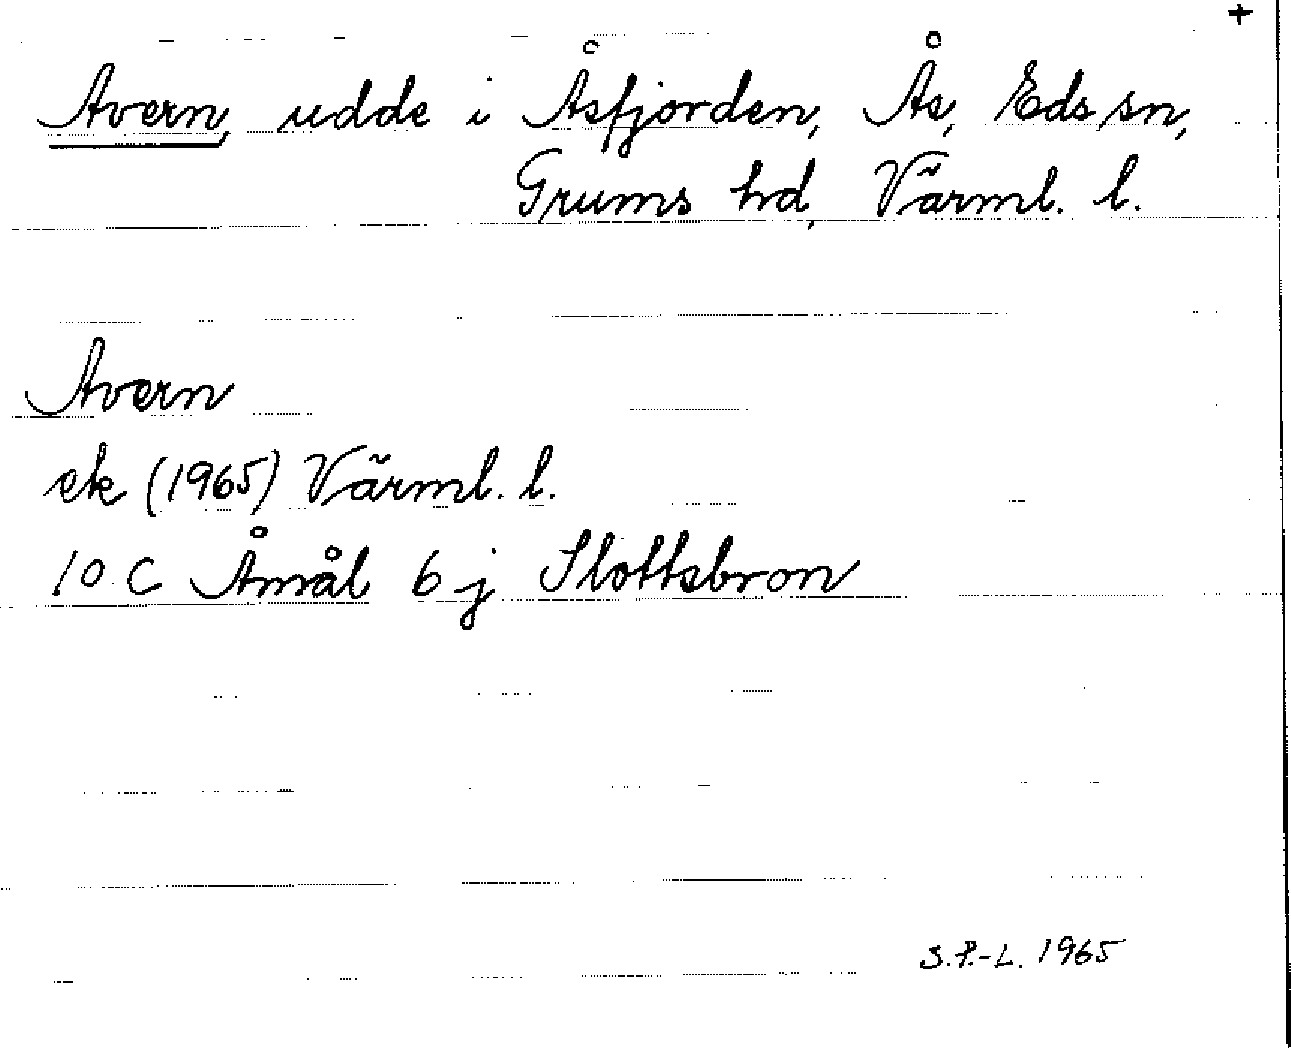 +
Avern, udde i Åsfjorden, Ås, Eds sn,
Grums hd, Värml. l.
Avern
ek (1965) Värml. l.
10 C Åmål 6 j Slottsbron
S.P.-L. 1965